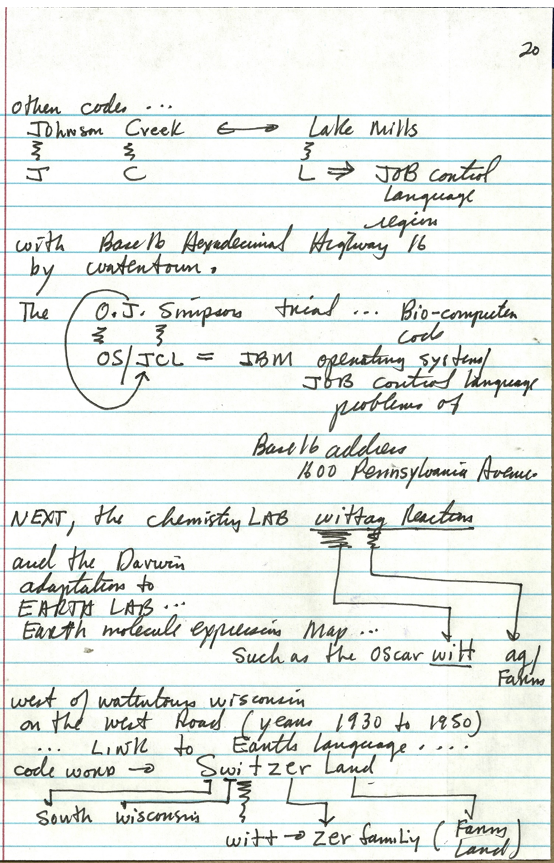 20
other codes ...
Johnson Creek ⟷ Lake Mills
J C L ⇒ JOB control
Language
region
with Base 16 Hexadecimal Highway 16
by watertown.
The O.J. Simpson trial ... Bio-computer
code
OS/JCL = IBM operating system/
JOB control language
problems of
Base 16 address
1600 Pennsylvania Avenue
NEXT, the chemistry LAB wittag Reaction
and the Darwin
adaptation to
EARTH LAB ...
Earth molecule expression Map ...
Such as the Oscar witt ag/
Farms
west of watertown wisconsin
on the west Road (years 1930 to 1950)
... LINK to Earth Language ....
code word → Switzer Land
South wisconsin
witt → zer family (Farms
Land)